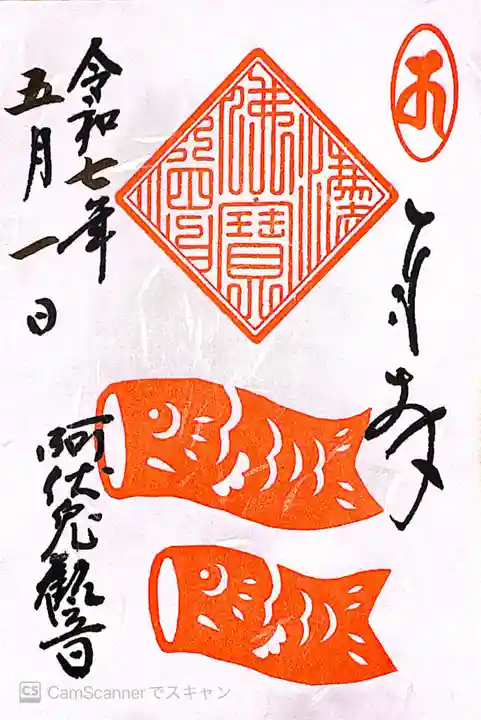 奉拝
佛寶
令和七年
五月一日
阿伏兎観音
CS CamScannerでスキャン